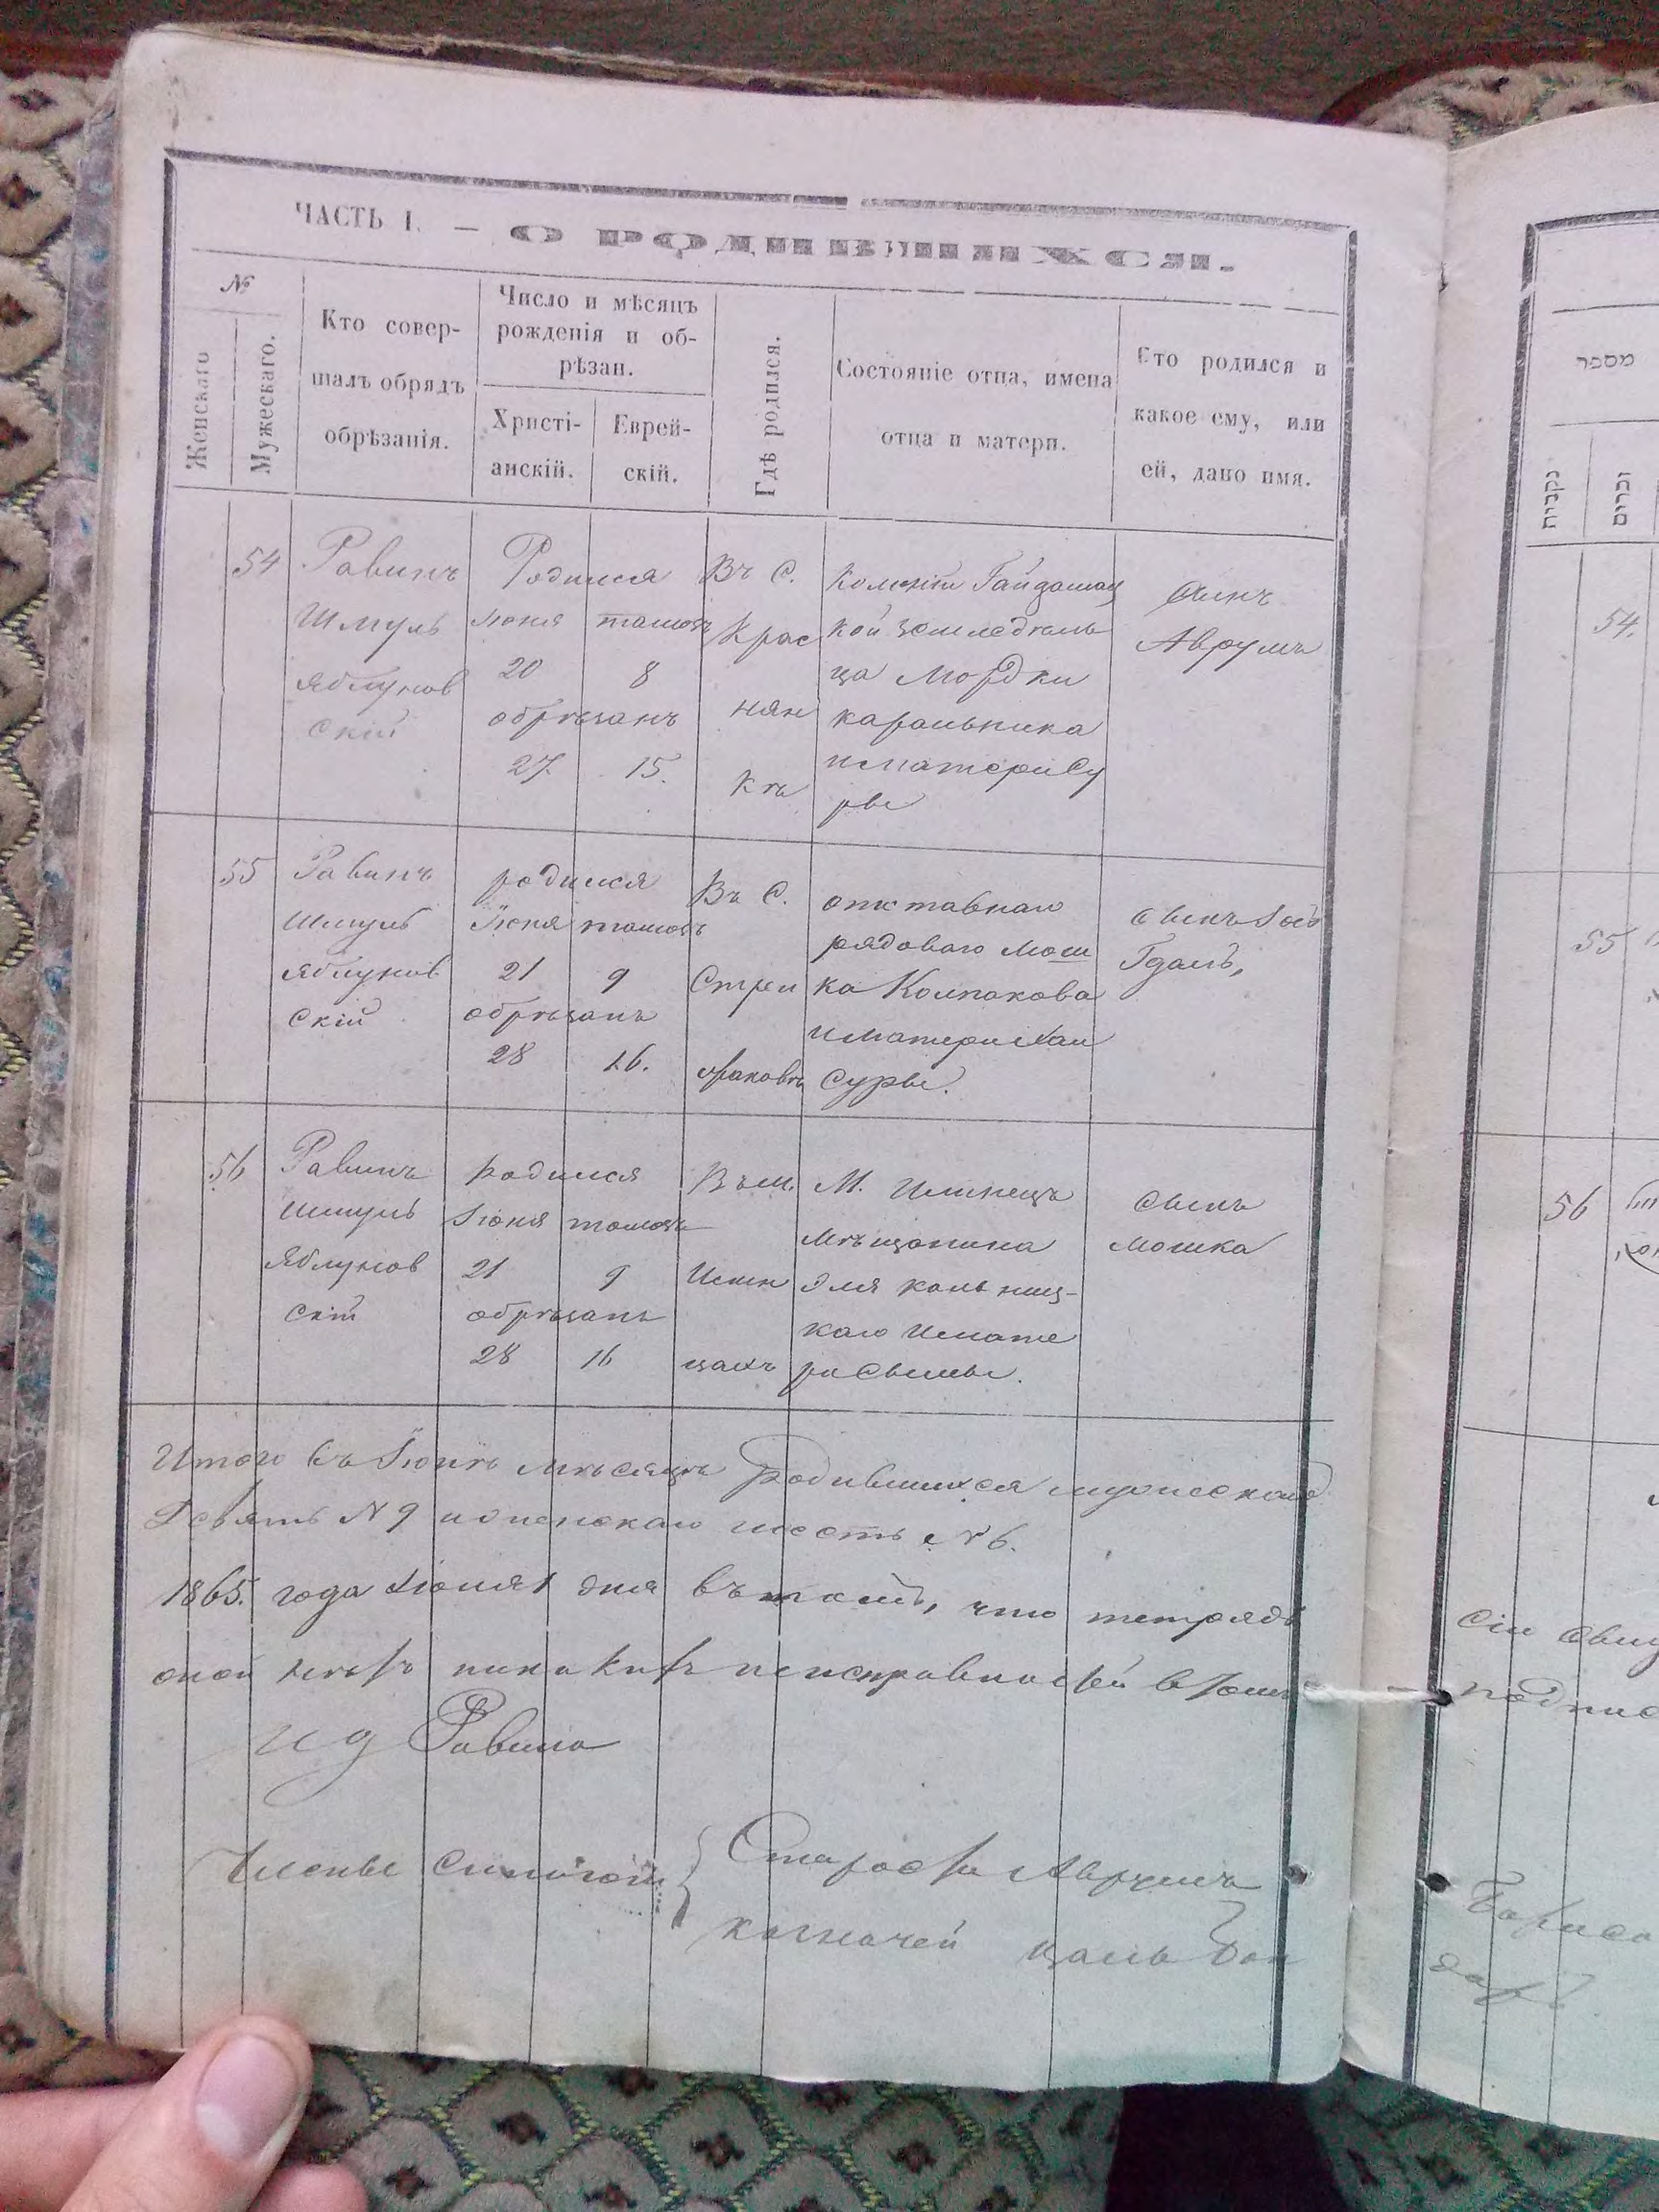 ЧАСТЬ I. — О РОДИВШИХСЯ.
№
Женскаго
Мужескаго.
Кто совер-
шалъ обрядъ
обрѣзанія.
Число и мѣсяцъ
рожденія и об-
рѣзан.
Христі-
анскій.
Еврей-
скій.
Гдѣ родился.
Состояніе отца, имена
отца и матери.
Кто родился и
какое ему, или
ей, дано имя.
54
Равинъ
Шмуль
Яблунов
скій
Родился
Іюня тамозъ
20 8
обрѣзанъ
27. 15.
Въ С.
Крас
нян
кѣ
Колоніи Гайдамац
кой земледѣль
ца Мордки
и матери Су
ры
Сынъ
Аврумъ
55
Равинъ
Шмуль
Яблунов
скій
родился
Іюня тамозъ
21 9
обрѣзанъ
28 16.
Въ С.
отставнаго
рядоваго Мош
ка Колпакова
и матери Хаи
Суры.
сынъ Іос
56
Равинъ
Шмуль
Яблунов
скій
родился
Іюня тамозъ
21 9
обрѣзанъ
28 16
Въ м.
Илин
цахъ
М. Илинецъ
Мѣщанина
каго и мате
ри
сынъ
Мошка
Итого въ Іюнѣ мѣсяцѣ родившихся мужескаго
Девять N 9 и женскаго шесть N 6.
1865. года Іюля 1 дня въ том, что тетрадь
оной нѣтъ никакихъ неисправностей в том
И д Равина
Члены
Староста Аврумъ
казначей
מספר
נקבות
זכרים
54.
55
56
Сіи
подпис